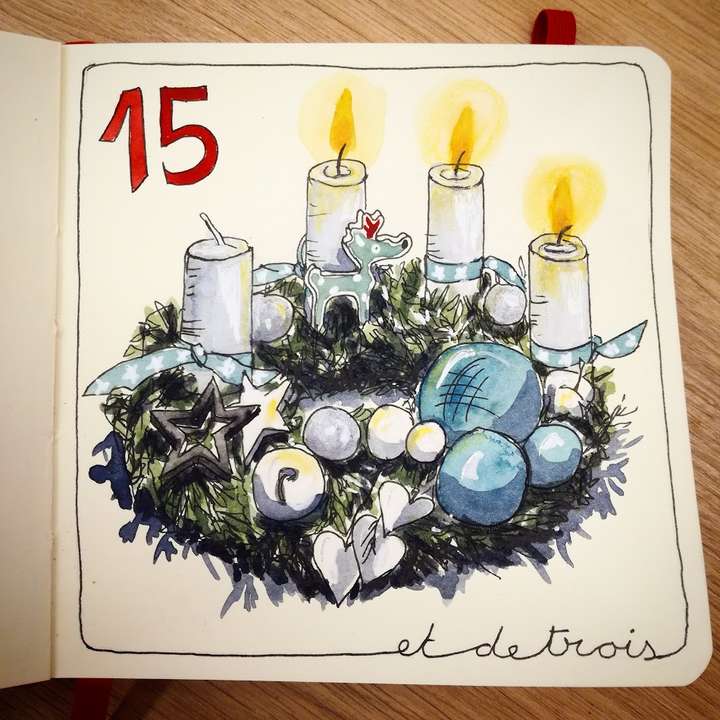 15
et de trois